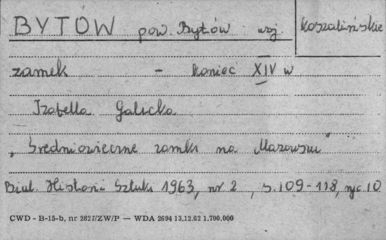 BYTÓW pow. Bytów woj. koszalińskie
zamek - koniec XIV w
Izabella Galicka
"Średniowieczne zamki na Mazowszu"
Biul. Historii Sztuki 1963, nr 2, s. 109-118, ryc. 10
CWD - B-15-b, nr 2827/ZW/P — WDA 2694 13.12.62 1.700.000